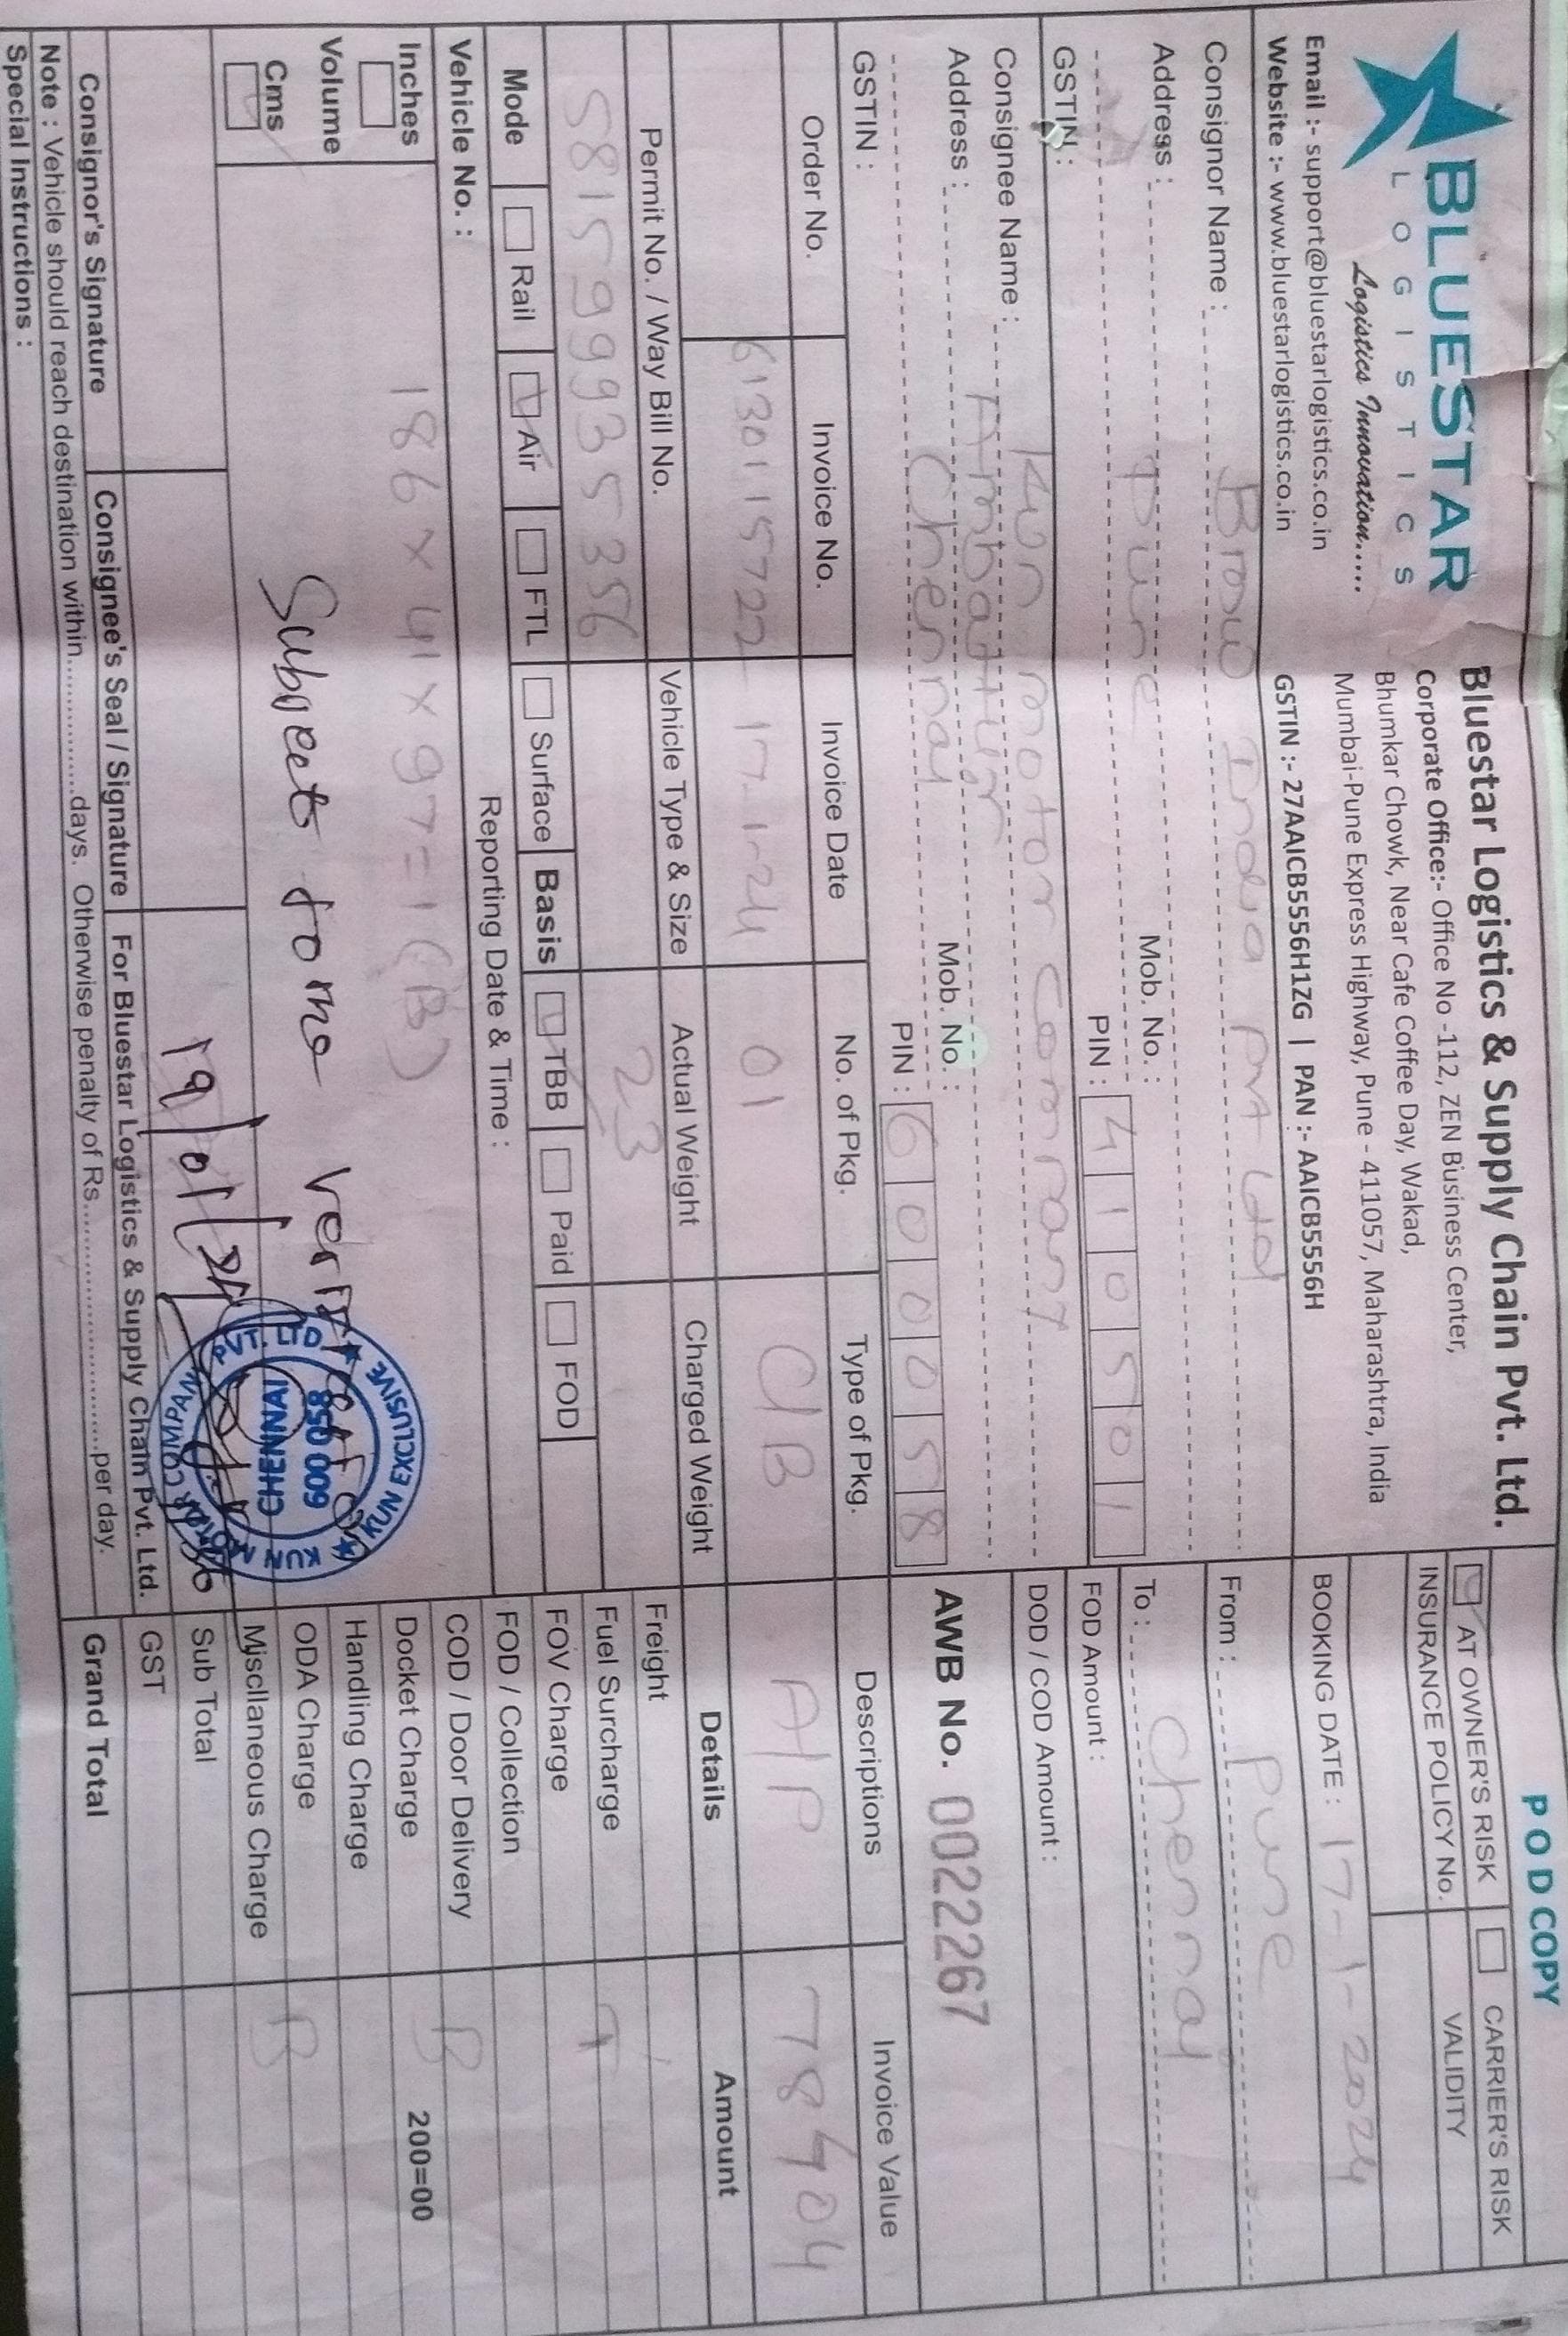 BLUESTAR
LOGISTICS
Logistics Innovation.....
Email :- support@bluestarlogistics.co.in
Website :- www.bluestarlogistics.co.in
Bluestar Logistics & Supply Chain Pvt. Ltd.
Corporate Office:- Office No -112, ZEN Business Center,
Bhumkar Chowk, Near Cafe Coffee Day, Wakad,
Mumbai-Pune Express Highway, Pune - 411057, Maharashtra, India
GSTIN :- 27AAICB5556H1ZG | PAN :- AAICB5556H
POD COPY
AT OWNER'S RISK CARRIER'S RISK
INSURANCE POLICY No. VALIDITY
BOOKING DATE : 17-1-2024
From : Pune
To : Chennai
FOD Amount :
DOD / COD Amount :
AWB No. 0022267
Consignor Name : India Pvt Ltd
Address :
Pune Mob. No. :
PIN : 410501
GSTIN :
Consignee Name : Kun motor company
Address : Ambattur
Chennai Mob. No. :
PIN : 600058
GSTIN :
Order No. Invoice No. Invoice Date No. of Pkg. Type of Pkg. Descriptions Invoice Value
6130115722 17-1-24 01 C/B A/P 78404
Permit No. / Way Bill No. Vehicle Type & Size Actual Weight Charged Weight
581599935356 23
Mode Rail Air FTL Surface Basis TBB Paid FOD
Vehicle No. : Reporting Date & Time :
Inches
Volume
Cms
186 x 41 x 97 = 1 (B)
Subject to me
19/01/24
KUN EXCLUSIVE
KUN MOTOR COMPANY PVT. LTD
CHENNAI
600 058
Details Amount
Freight
Fuel Surcharge T
FOV Charge
FOD / Collection
COD / Door Delivery B
Docket Charge 200=00
Handling Charge
ODA Charge B
Miscllaneous Charge
Sub Total
GST
Grand Total
Consignor's Signature Consignee's Seal / Signature For Bluestar Logistics & Supply Chain Pvt. Ltd.
Note : Vehicle should reach destination within.................days. Otherwise penalty of Rs.............................per day.
Special Instructions :